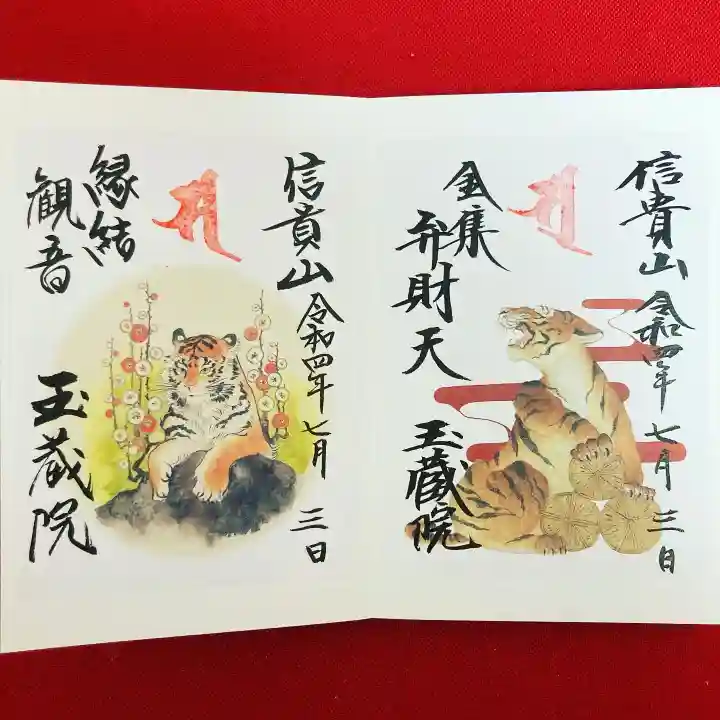 信貴山
金集
弁財天
玉蔵院
令和四年七月三日
信貴山
縁結
観音
玉蔵院
令和四年七月三日